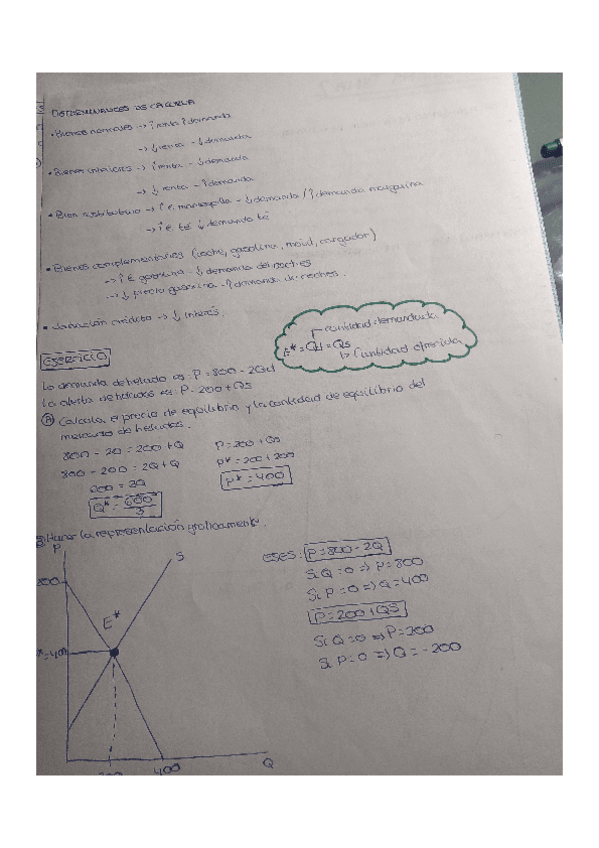 DETERMINANTES DE
• Bienes normales -> ↑renta ↑demanda
-> ↓renta - ↓demanda
• Bienes inferiores -> ↑renta - ↓demanda
-> ↓ renta - ↑demanda
• Bien sustitutivo -> ↑€ mantequilla - ↓demanda / ↑demanda margarina
-> ↑€ té ↓ demanda té
• Bienes complementarios (coche, gasolina, movil, cargador)
-> ↑€ gasolina - ↓ demanda de coches
-> ↓ precio gasolina - ↑demanda de coches.
• crédito -> ↓ interés.
cantidad demandada
E* = Qd = Qs
Cantidad ofrecida
EJERCICIO
La demanda de helado es: P = 800 - 2Qd
La oferta de helados es: P = 200 + QS
A) Calcula el precio de equilibrio y la cantidad de equilibrio del
mercado de helados.
800 - 2Q = 200 + Q
P = 200 + QS
800 - 200 = 2Q + Q
P* = 200 + 200
600 = 3Q
P* = 400
Q* = 600/3
B) Hacer la representación gráficamente.
P
S
EJES: P = 800 - 2Q
Si Q = 0 => P = 800
800
Si P = 0 => Q = 400
P = 200 + QS
E*
Si Q = 0 => P = 200
= 400
Si P = 0 => Q = -200
400
Q